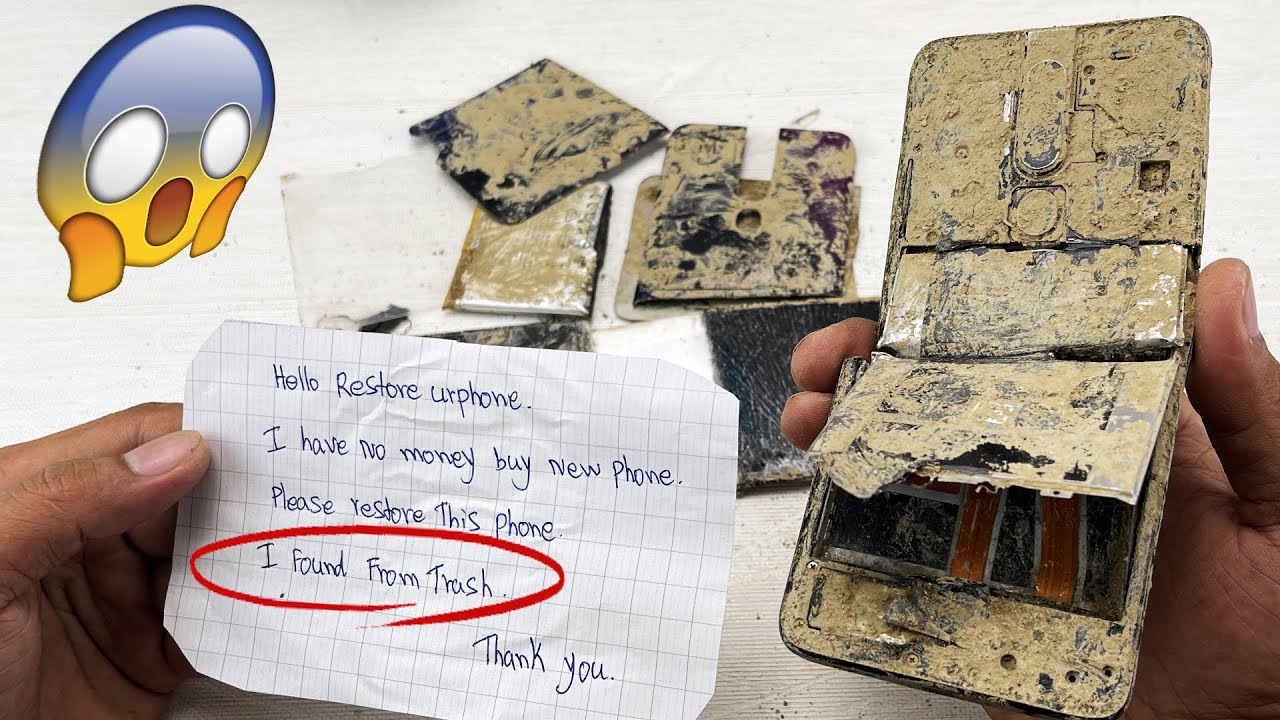 Hello Restore urphone.
I have no money buy new phone.
Please restore this phone.
I Found From Trash.
Thank you.